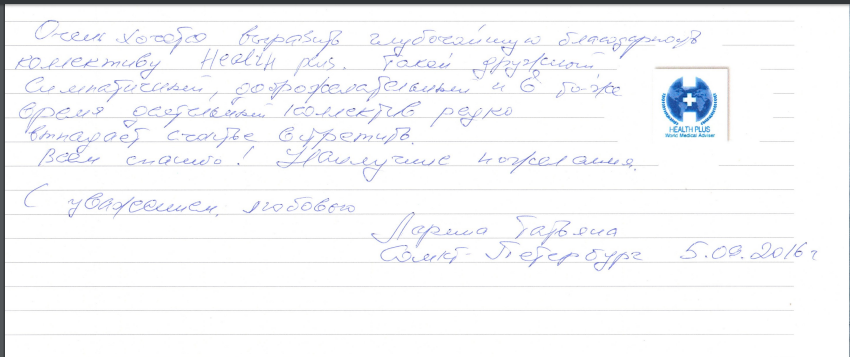 Очень хочется выразить глубочайшую благодарность
коллективу Health plus. Такой дружный
симпатичный, доброжелательный и в то же
время деятельный коллектив редко
выпадает счастье встретить.
Всем спасибо! Наилучшие пожелания.
С уважением, любовью
Татьяна
Санкт-Петербург 5.09.2016 г
HEALTH PLUS
World Medical Adviser